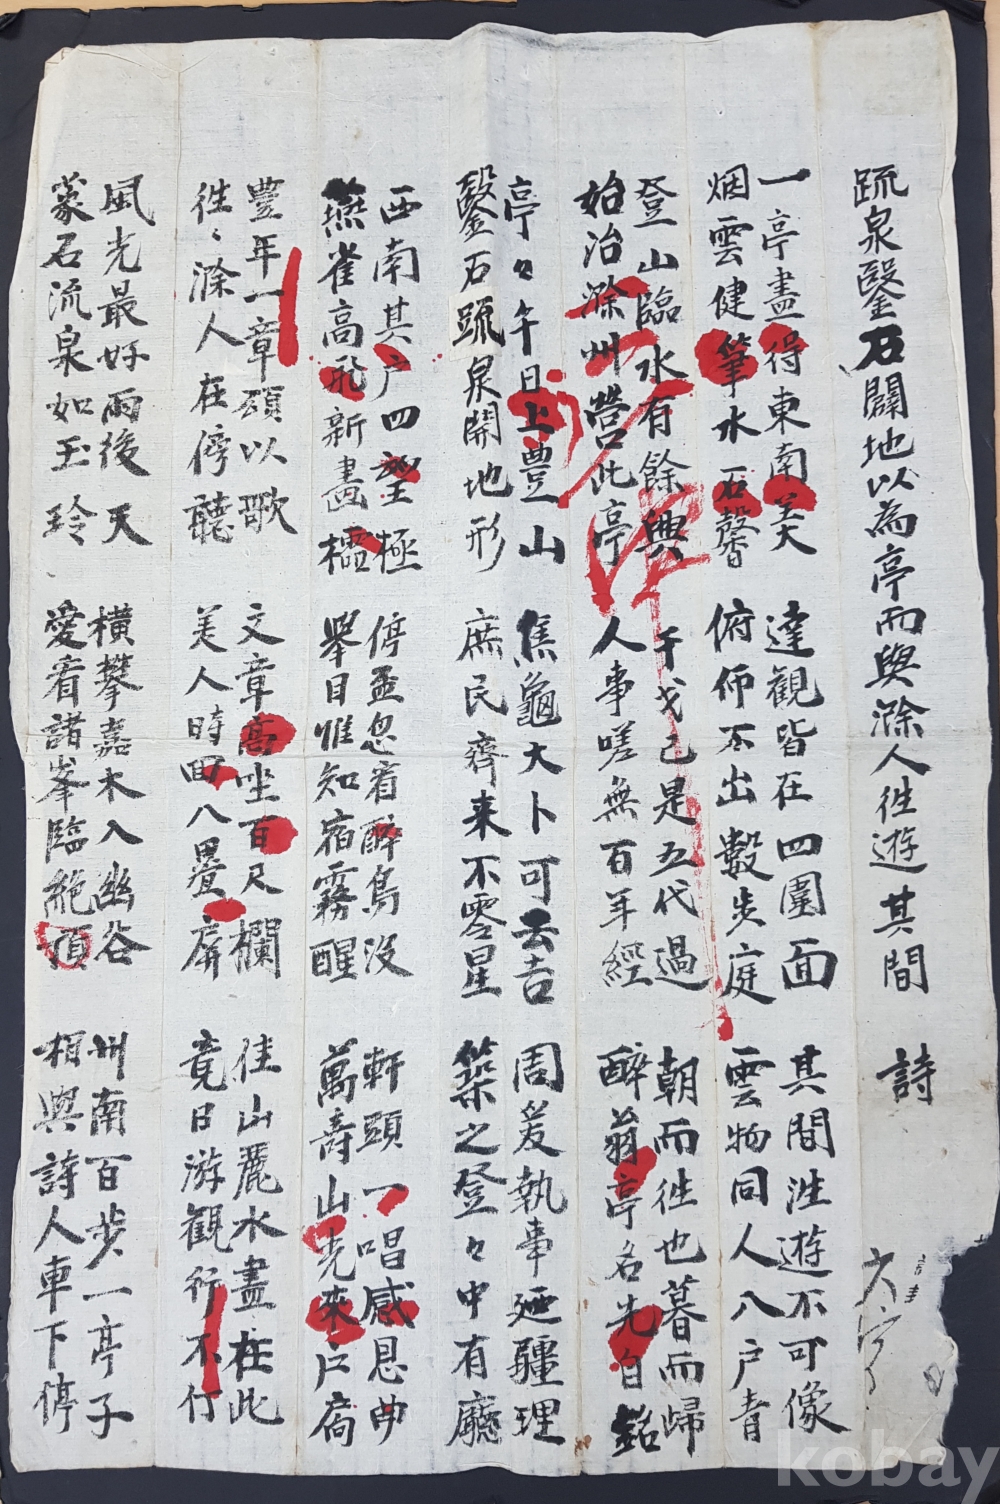 疏泉鑿石闢地以為亭而與滁人徃遊其間 詩
一亭盡得東南美 達觀皆在四圍面 其間徃遊不可像
烟雲健筆水石馨 俯仰不出數步庭 雲物同人八戶青
登山臨水有餘興 干戈已是五代過 朝而徃也暮而歸
始治滁州營此亭 人事嗟無百年經 醉翁亭名先自銘
亭々午日上豊山 焦龜大卜可云吉 周爰執事廼疆理
鑿石疏泉開地形 庶民齊来不零星 築之登々中有廳
西南其户四望極 停盃忽看醉鳥没 軒頭一唱感恩曲
燕雀高飛新畵櫺 舉目惟知宿霧醒 萬壽山光來戶扃
豊年一章頌以歌 文章高坐百尺欄 佳山麗水盡在此
徃々滁人在傍聽 美人時回八疊屏 竟日游觀行不行
風光最好雨後天 橫攀嘉木入幽谷 州南百步一亭子
蒙石流泉如玉玲 愛看諸峯臨絶頂 相與詩人車下停
kobay